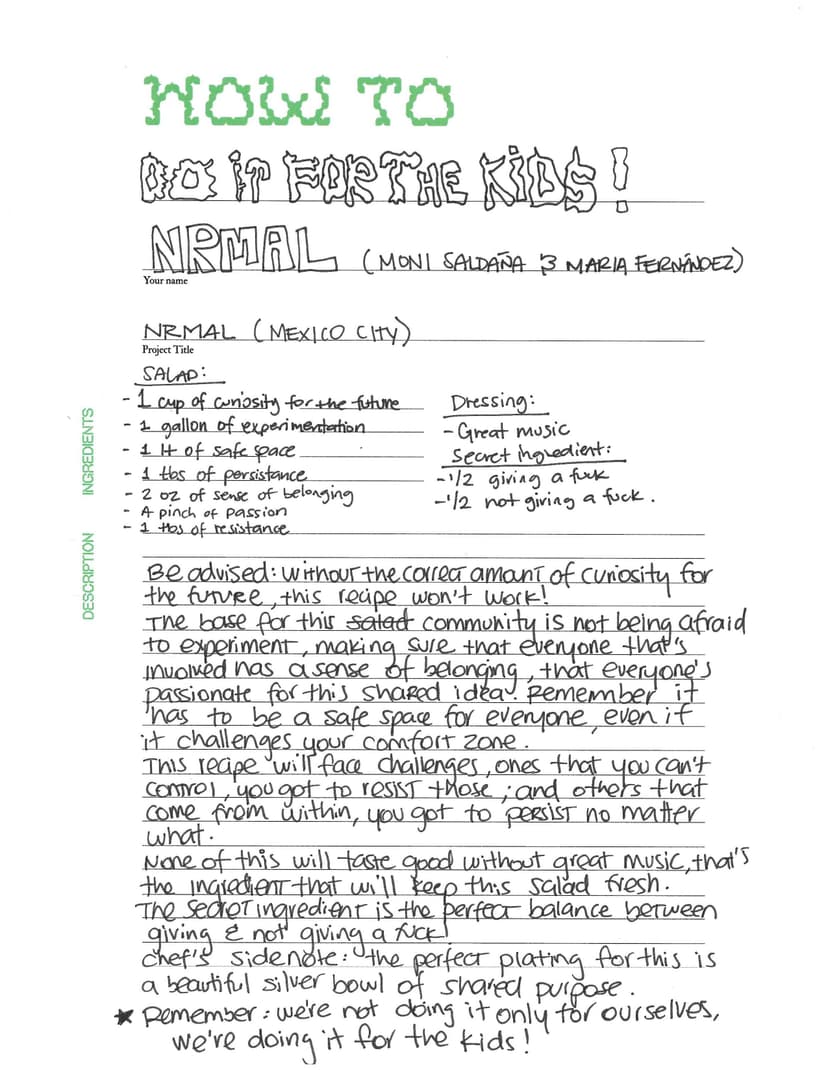 HOW TO
DO IT FOR THE KiDS!
NRMAL (MONI SALDAÑA & MARIA FERNÁNDEZ)
Your name
NRMAL (MEXICO CITY)
Project Title
INGREDIENTS
SALAD:
- 1 cup of curiosity for the future
- 1 gallon of experimentation
- 1 lt of safe space
- 1 tbs of persistance
- 2 oz of sense of belonging
- A pinch of passion
- 1 tbs of resistance
Dressing:
- Great music
Secret ingredient:
- 1/2 giving a fuck
- 1/2 not giving a fuck.
DESCRIPTION
Be advised: without the correct amant of curiosity for
the future, this recipe won't work!
The base for this salad community is not being afraid
to experiment, making sure that everyone that's
involved has a sense of belonging, that everyone's
passionate for this shared idea. Remember it
has to be a safe space for everyone, even if
it challenges your comfort zone.
This recipe will face challenges, ones that you can't
control, you got to resist those; and others that
come from within, you got to persist no matter
what.
None of this will taste good without great music, that's
the ingredient that will keep this salad fresh.
The secret ingredient is the perfect balance between
giving & not giving a fuck!
Chef's sidenote: the perfect plating for this is
a beautiful silver bowl of shared purpose.
★ Remember: we're not doing it only for ourselves,
we're doing it for the kids!